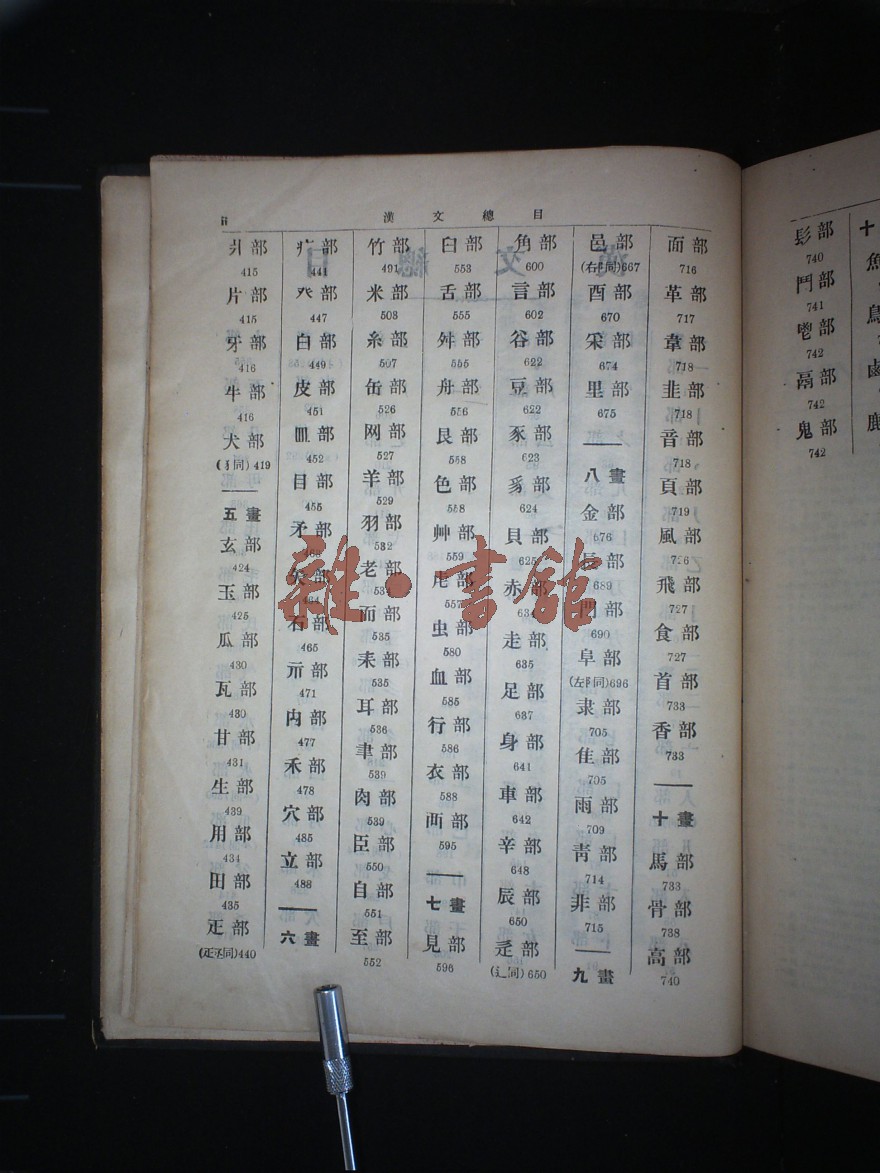 ii
漢文總目
爿部
415
片部
415
牙部
416
牛部
416
犬部
(犭同) 419
五畫
玄部
424
玉部
425
瓜部
430
瓦部
430
甘部
431
生部
439
用部
434
田部
435
疋部
同)440
疒部
441
癶部
447
白部
449
皮部
451
皿部
452
目部
455
矛部
463
矢部
464
石部
465
示部
471
禸部
477
禾部
478
穴部
485
立部
488
六畫
竹部
491
米部
503
糸部
507
缶部
526
网部
527
羊部
529
羽部
532
老部
534
而部
535
耒部
535
耳部
536
聿部
539
肉部
539
臣部
550
自部
551
至部
552
臼部
553
舌部
555
舛部
555
舟部
556
艮部
558
色部
558
艸部
559
虍部
557
虫部
580
血部
585
行部
586
衣部
588
襾部
595
七畫
見部
596
角部
600
言部
602
谷部
622
豆部
622
豕部
623
豸部
624
貝部
625
赤部
634
走部
635
足部
637
身部
641
車部
642
辛部
648
辰部
650
辵部
(辶同) 650
邑部
(右阝同)667
酉部
670
釆部
674
里部
675
八畫
金部
676
長部
689
門部
690
阜部
(左阝同)696
隶部
705
隹部
705
雨部
709
靑部
714
非部
715
九畫
面部
716
革部
717
韋部
718
韭部
718
音部
718
頁部
719
風部
726
飛部
727
食部
727
首部
733
香部
733
十畫
馬部
733
骨部
738
高部
740
髟部
740
鬥部
741
鬯部
742
鬲部
742
鬼部
742
十
魚
鳥
鹵
鹿
雜·書館